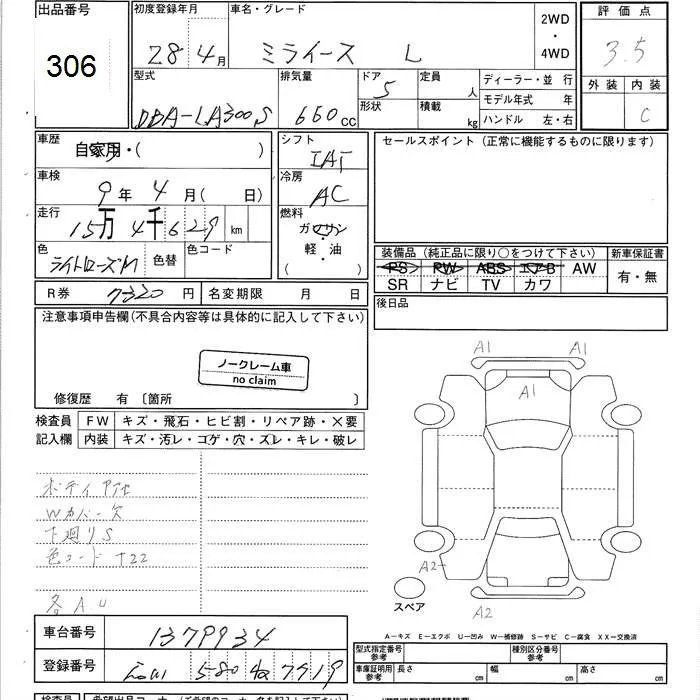 出品番号
306
初度登録年月
28年4月
車名・グレード
ミライース L
2WD
・
4WD
評価点
3.5
外装 内装
C
型式
DBA-LA300S
排気量
660cc
ドア
5
形状
定員
人
積載
kg
ディーラー・並行
モデル年式 年
ハンドル 左・右
車歴
自家用・( )
シフト
IAT
セールスポイント (正常に機能するものに限ります)
車検
9年4月( 日)
冷房
AC
走行
15万4千629km
燃料
ガソリン
・
軽・油
( )
色
ライトローズM
色替
色コード
装備品 (純正品に限り○をつけて下さい)
PS PW ABS エアB AW
SR ナビ TV カワ
新車保証書
有・無
R券 7320円
名変期限 月 日
後日品
注意事項申告欄(不具合内容等は具体的に記入して下さい)
ノークレーム車
no claim
修復歴 有 〔箇所 〕
検査員
記入欄
FW キズ・飛石・ヒビ割・リペア跡・×要
内装 キズ・汚レ・コゲ・穴・ズレ・キレ・破レ
Wカバー欠
下廻りS
色コード T22
各AU
A1
A1
A1
A2
A2
スペア
A-キズ E-エクボ U-凹み W-補修跡 S-サビ C-腐食 XX-交換済
車台番号
1379934
登録番号
580
7919
型式指定番号
参考
種別区分番号
参考
車庫証明用
参考
長さ cm
幅 cm
高さ cm